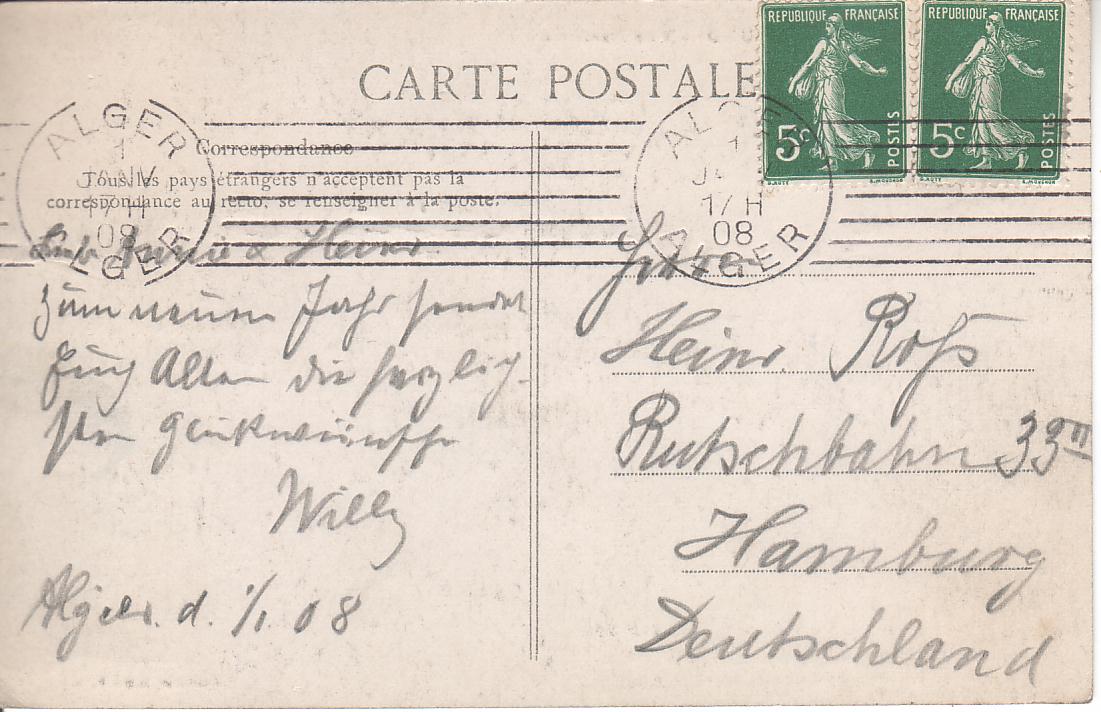 CARTE POSTALE
RÉPUBLIQUE FRANÇAISE
5c
POSTES
RÉPUBLIQUE FRANÇAISE
5c
POSTES
ALGER
1
JANV
17 H
08
ALGER
ALGER
1
JA
17 H
08
ALGER
Correspondance
Tous les pays étrangers n'acceptent pas la
correspondance au recto, se renseigner à la poste.
& Heini
zum neuen Jahr sendet
Euch Allen die herzlich-
sten Glückwünsche
Willy
Algier. d. 1/1. 08
Herrn
Heinr. Roß
Rutschbahn 33 III
Hamburg
Deutschland